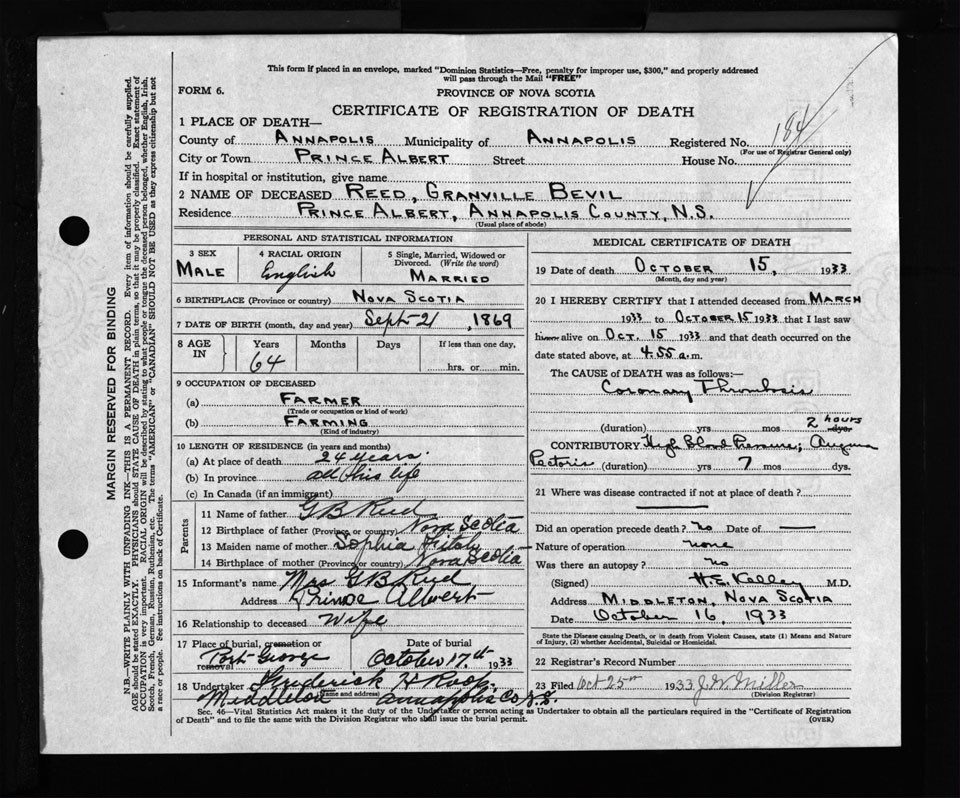 This form if placed in an envelope, marked "Dominion Statistics—Free, penalty for improper use, $300," and properly addressed
will pass through the Mail "FREE"
FORM 6.
PROVINCE OF NOVA SCOTIA
CERTIFICATE OF REGISTRATION OF DEATH
1 PLACE OF DEATH—
County of ANNAPOLIS Municipality of ANNAPOLIS Registered No. 184
(For use of Registrar General only)
City or Town PRINCE ALBERT Street House No.
If in hospital or institution, give name
2 NAME OF DECEASED REED, GRANVILLE BEVIL
Residence PRINCE ALBERT, ANNAPOLIS COUNTY, N.S.
(Usual place of abode)
PERSONAL AND STATISTICAL INFORMATION
3 SEX
MALE
4 RACIAL ORIGIN
English
5 Single, Married, Widowed or
Divorced. (Write the word)
MARRIED
6 BIRTHPLACE (Province or country) NOVA SCOTIA
7 DATE OF BIRTH (month, day and year) Sept-21, 1869
8 AGE
IN
Years
64
Months
Days
If less than one day,
hrs. or min.
9 OCCUPATION OF DECEASED
(a) FARMER
(Trade or occupation or kind of work)
(b) FARMING
(Kind of industry)
10 LENGTH OF RESIDENCE (in years and months)
(a) At place of death 24 years.
(b) In province all his life
(c) In Canada (if an immigrant)
Parents
11 Name of father G B Reed
12 Birthplace of father (Province or country) Nova Scotia
13 Maiden name of mother Sophia
14 Birthplace of mother (Province or country) Nova Scotia
15 Informant's name Mrs G B Reed
Address Prince Albert
16 Relationship to deceased Wife
17 Place of burial, cremation or
removal Port George
Date of burial
October 17th 1933
18 Undertaker Frederick H Roop.
(Name and address)
Middleton Annapolis Co N.S.
MEDICAL CERTIFICATE OF DEATH
19 Date of death OCTOBER 15, 1933
(Month, day and year)
20 I HEREBY CERTIFY that I attended deceased from MARCH
1933 to OCTOBER 15 1933 that I last saw
him alive on OCT. 15 1933 and that death occurred on the
date stated above, at 4.55 a.m.
The CAUSE of DEATH was as follows:—
Coronary Thrombosis
(duration) yrs mos 2 hours dys.
CONTRIBUTORY High Blood Pressure; Angina
Pectoris (duration) yrs 7 mos dys.
21 Where was disease contracted if not at place of death?
Did an operation precede death? no Date of —
Nature of operation none
Was there an autopsy? no
(Signed) H. E. Kelley M.D.
Address MIDDLETON, NOVA SCOTIA
Date October 16, 1933
State the Disease causing Death, or in death from Violent Causes, state (1) Means and Nature
of Injury, (2) whether Accidental, Suicidal or Homicidal.
22 Registrar's Record Number
23 Filed Oct 25th 1933 J. W. Miller
(Division Registrar)
Sec. 46—Vital Statistics Act makes it the duty of the Undertaker or person acting as Undertaker to obtain all the particulars required in the "Certificate of Registration
of Death" and to file the same with the Division Registrar who shall issue the burial permit.
(OVER)
MARGIN RESERVED FOR BINDING
N.B.—WRITE PLAINLY WITH UNFADING INK—THIS IS A PERMANENT RECORD. Every item of information should be carefully supplied.
AGE should be stated EXACTLY. PHYSICIANS should STATE CAUSE OF DEATH in plain terms, so that it may be properly classified. Exact statement of
OCCUPATION is very important. RACIAL ORIGIN will be described by stating to what people or tongue the deceased person belonged, whether English, Irish,
Scotch, French, German, Russian, Ruthenian, etc. The terms "AMERICAN" or "CANADIAN" SHOULD NOT BE USED as they express citizenship but not
a race or people. See instructions on back of Certificate.